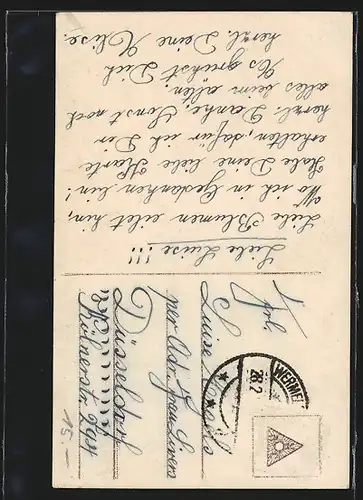 Liebe Luise!!!
Liebe Blumen eilet hin,
Wo ich in Gedanken bin!
Habe Deine liebe Karte
erhalten, dafür ich Dir
herzl. Danke, Sonst noch
alles beim alten.
Es grüsst Dich
herzl. Deine Elise.
Frl.
Luise
per Adr.
Düsseldorf
Kölnerstr.
WERMEL
28.2
15.–